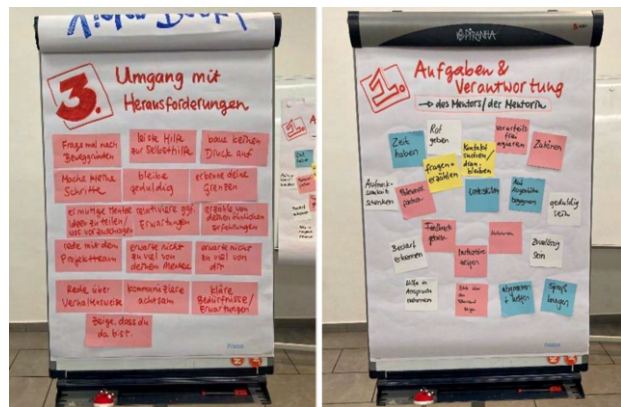 3.
Umgang mit
Herausforderungen
Frage mal nach
Beweggründen
leiste Hilfe
zur Selbsthilfe
baue keinen
Druck auf
Mache kleine
Schritte
bleibe
geduldig
erkenne deine
Grenzen
ermutige Mentee
Ideen zu teilen/
relativiere ggf.
Erwartungen
erzähle von
deinen ähnlichen
Erfahrungen
rede mit dem
Projektteam
erwarte nicht
zu viel von
deinem Mentee
erwarte nicht
zu viel von
dir
Rede über
Verhaltensweise
kommuniziere
achtsam
kläre
Bedürfnisse/
Erwartungen
Zeige, dass du
da bist.
1.
Aufgaben &
Verantwortung
→ des Mentors/der Mentorin
Zeit
haben
Rat
geben
Kontakt
suchen/
dran
bleiben
vorurteils
frei
agieren
Zuhören
fragen+
erzählen
Aufmerk-
samkeit
schenken
Interesse
Loslassen
Auf
Augenhöhe
begegnen
geduldig
sein
Feedback
geben
Bedarf
erkennen
Initiative
zeigen
Zuverlässig
sein
Hilfe in
Anspruch
nehmen
Spaß
haben